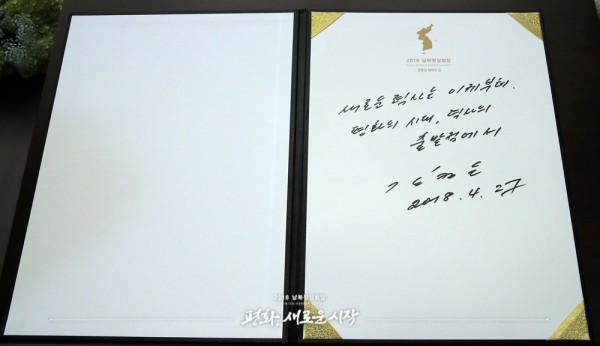 2018 남북정상회담
판문점 평화의 집
새로운 력사는 이제부터.
평화의 시대, 력사의
출발점에서
김정은
2018. 4. 27
2018 남북정상회담
평화, 새로운 시작